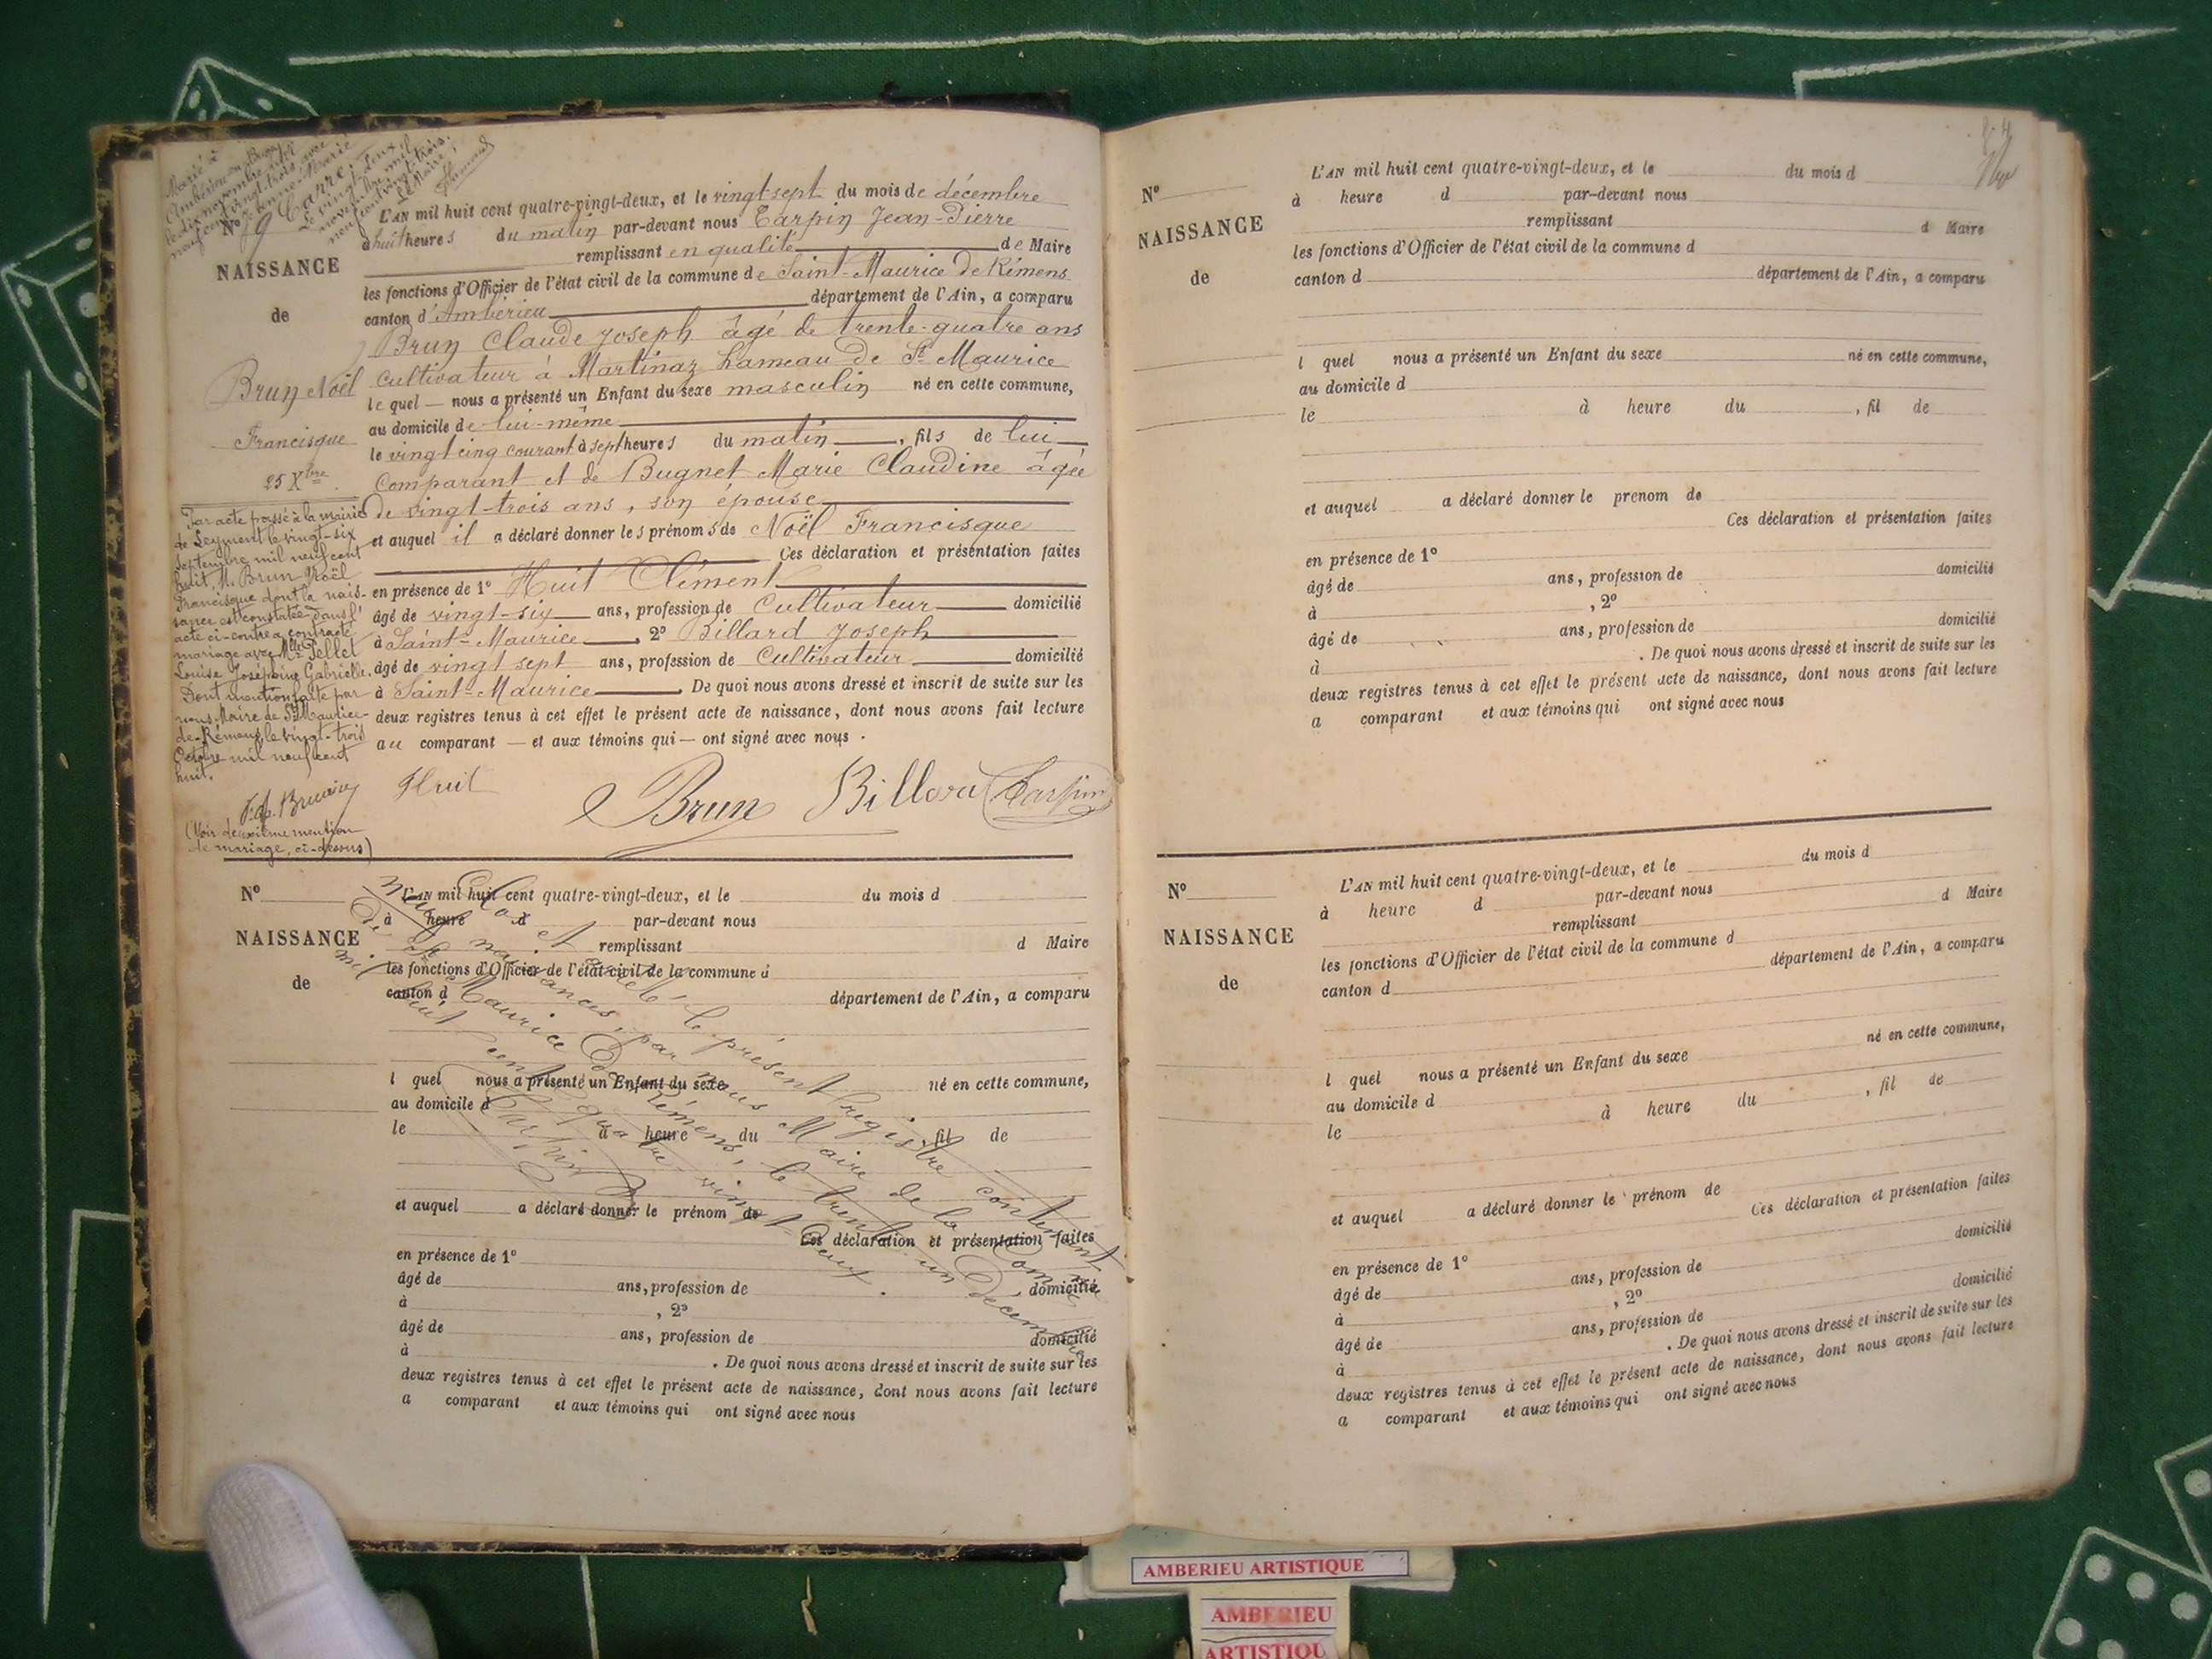 Marié à
Ambérieu en Bugey
le dix novembre mil
neuf cent vingt-trois avec
Jeanne Marie
Carre.
le vingt-deux
novembre mil
neuf cent vingt-trois.
Le Maire,
N° 19
NAISSANCE
de
Brun Noël
Francisque
25 Xbre
L'AN mil huit cent quatre-vingt-deux, et le vingt sept du mois de décembre
à huit heures du matin par-devant nous Tarpin Jean-Pierre
remplissant en qualité de Maire
les fonctions d'Officier de l'état civil de la commune de Saint-Maurice de Rémens
canton d'Ambérieu département de l'Ain, a comparu
Brun Claude Joseph âgé de trente-quatre ans
cultivateur à Martinaz hameau de St Maurice
le quel — nous a présenté un Enfant du sexe masculin né en cette commune,
au domicile de lui-même
le vingt cinq courant à sept heures du matin, fils de lui
Comparant et de Bugnet Marie Claudine âgée
de vingt-trois ans, son épouse
et auquel il a déclaré donner les prénoms de Noël Francisque
Ces déclaration et présentation faites
en présence de 1° Huit Clément
âgé de vingt-six ans, profession de Cultivateur domicilié
à Saint-Maurice, 2° Billard Joseph
âgé de vingt sept ans, profession de Cultivateur domicilié
à Saint-Maurice. De quoi nous avons dressé et inscrit de suite sur les
deux registres tenus à cet effet le présent acte de naissance, dont nous avons fait lecture
au comparant — et aux témoins qui — ont signé avec nous.
Huit Brun Billard Tarpin
Par acte passé à la mairie
de Leyment le vingt-six
septembre mil neuf cent
huit, M. Brun Noël
Francisque dont la nais-
sance est constatée dans l'
acte ci-contre a contracté
mariage avec Mlle Pellet
Louise Joséphine Gabrielle.
Dont mention faite par
nous Maire de St Maurice-
de-Rémens, le vingt-trois
Octobre mil neuf cent
huit.
(Voir deuxième mention
de mariage, ci-dessus)
N°
NAISSANCE
de
L'AN mil huit cent quatre-vingt-deux, et le du mois d
à heure d par-devant nous
remplissant d Maire
les fonctions d'Officier de l'état civil de la commune d
canton d département de l'Ain, a comparu
l quel nous a présenté un Enfant du sexe né en cette commune,
au domicile d
le à heure du , fil de
et auquel a déclaré donner le prénom de
Ces déclaration et présentation faites
en présence de 1°
âgé de ans, profession de domicilié
à , 2°
âgé de ans, profession de domicilié
à . De quoi nous avons dressé et inscrit de suite sur les
deux registres tenus à cet effet le présent acte de naissance, dont nous avons fait lecture
a comparant et aux témoins qui ont signé avec nous
Clos et arrêté le présent registre contenant
neuf naissances, par nous Maire de la Commune
de St Maurice de Rémens, le trente un Décembre
mil huit cent quatre-vingt-deux.
Tarpin
N°
NAISSANCE
de
L'AN mil huit cent quatre-vingt-deux, et le du mois d
à heure d par-devant nous
remplissant d Maire
les fonctions d'Officier de l'état civil de la commune d
canton d département de l'Ain, a comparu
l quel nous a présenté un Enfant du sexe né en cette commune,
au domicile d
le à heure du , fil de
et auquel a déclaré donner le prenom de
Ces déclaration et présentation faites
en présence de 1°
âgé de ans, profession de domicilié
à , 2°
âgé de ans, profession de domicilié
à . De quoi nous avons dressé et inscrit de suite sur les
deux registres tenus à cet effet le présent acte de naissance, dont nous avons fait lecture
a comparant et aux témoins qui ont signé avec nous
N°
NAISSANCE
de
L'AN mil huit cent quatre-vingt-deux, et le du mois d
à heure d par-devant nous
remplissant d Maire
les fonctions d'Officier de l'état civil de la commune d
canton d département de l'Ain, a comparu
l quel nous a présenté un Enfant du sexe né en cette commune,
au domicile d
le à heure du , fil de
et auquel a déclaré donner le prénom de
Ces déclaration et présentation faites
en présence de 1°
âgé de ans, profession de domicilié
à , 2°
âgé de ans, profession de domicilié
à . De quoi nous avons dressé et inscrit de suite sur les
deux registres tenus à cet effet le présent acte de naissance, dont nous avons fait lecture
a comparant et aux témoins qui ont signé avec nous
AMBERIEU ARTISTIQUE
AMBERIEU
ARTISTIQU